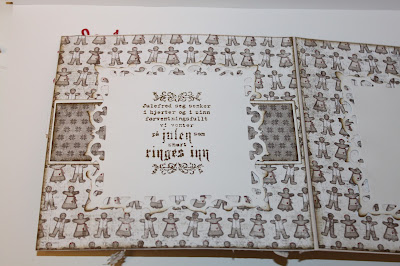 Julefred seg senker
i hjerter og i sinn
forventningsfullt
vi venter
på julen som
snart
ringes inn